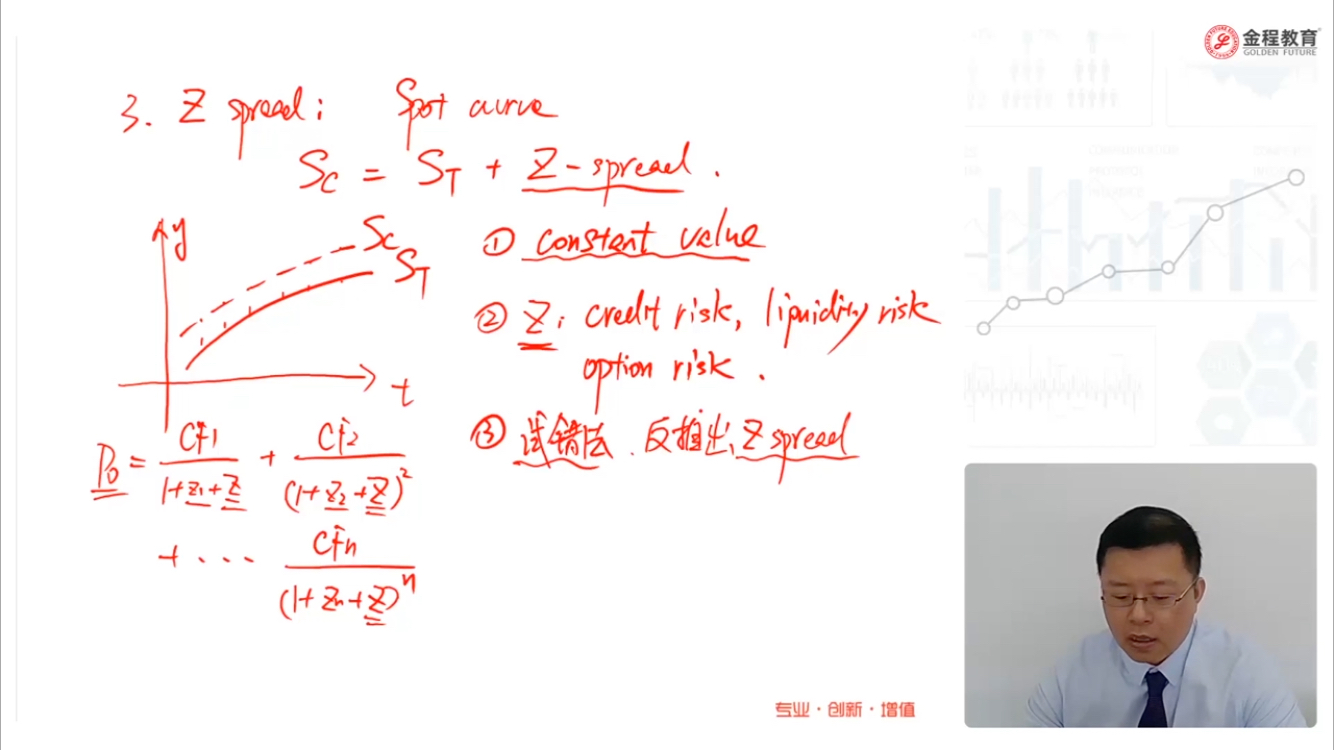 金程教育
GOLDEN FUTURE
3. Z spread: Spot curve
S_C = S_T + Z-spread.
y
S_C
S_T
t
① constant value
② Z: credit risk, liquidity risk
option risk.
③ 试错法. 反推出 Z spread
P_0 = CF_1 / (1+z_1+Z) + CF_2 / (1+z_2+Z)^2
+ ... CF_n / (1+z_n+Z)^n
专业·创新·增值